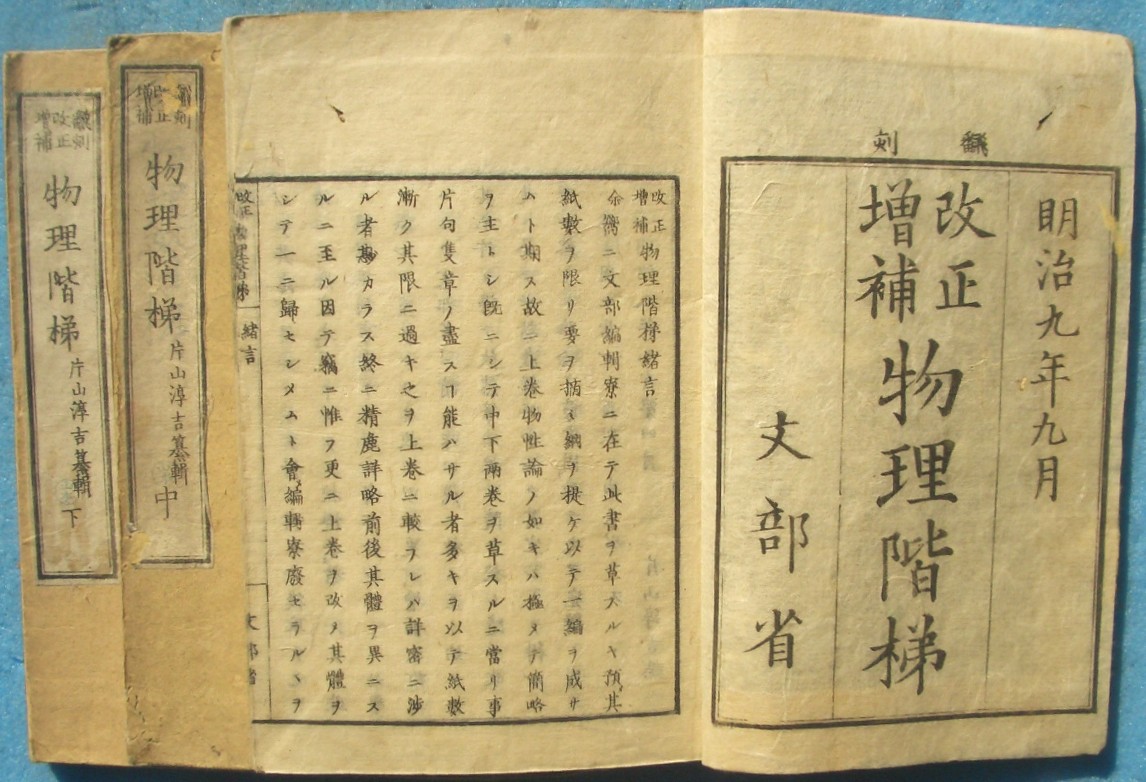 翻刻
明治九年九月
改正
増補
物理階梯
文部省
改正
増補
物理階梯緒言
余嚮ニ文部編輯寮ニ在テ此書ヲ草スルヤ預其
紙數ヲ限リ要ヲ摘ミ綱ヲ提ケ以テ一編ヲ成サ
ハト期ス故ニ上巻物性論ノ如キハ極メテ簡略
ヲ主トシ既ニシテ中下兩巻ヲ草スルニ當リ事
片句隻章ノ盡スヿ能ハサル者多キヲ以テ紙數
漸ク其限ニ過キ之ヲ上巻ニ較フレハ詳密ニ渉
ル者尠カラス終ニ精麁詳略前後其體ヲ異ニス
ルニ至ル因テ竊ニ惟フ更ニ上巻ヲ改メ其體ヲ
シテ一ニ歸セシメムト會編輯寮廢セラルヽヲ
改正
緒言
文部省
翻刻
改正
増補
物理階梯
片山淳吉纂輯
中
翻刻
改正
増補
物理階梯
片山淳吉纂輯
下